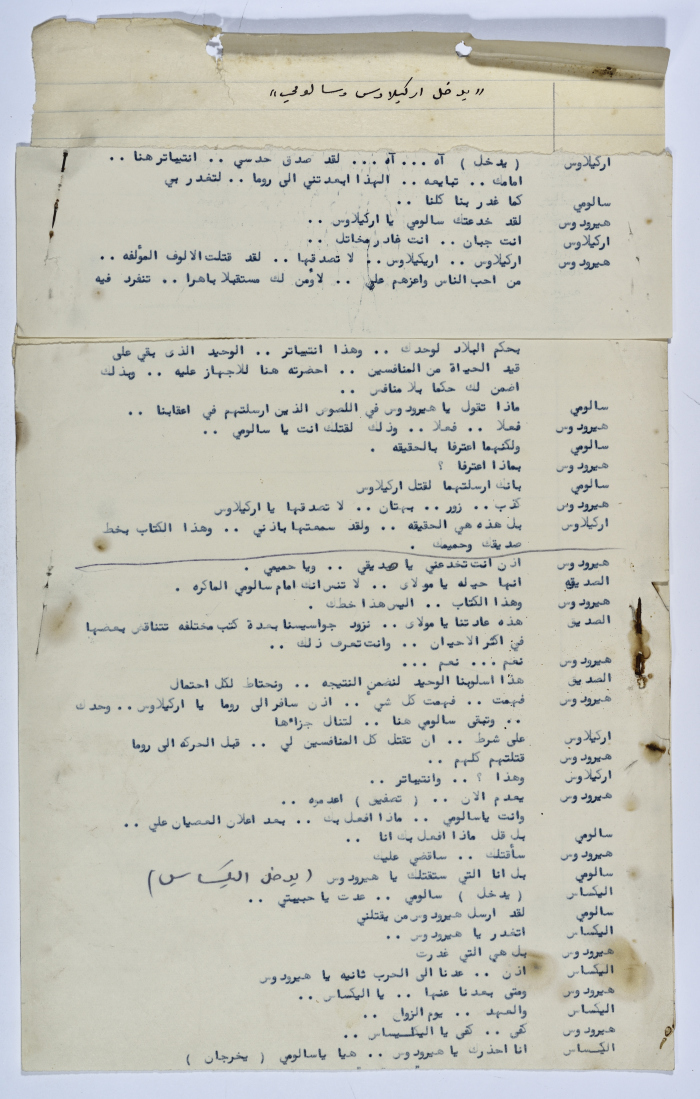 "يدخل اركيلاوس وسالومي"
اركيلاوس ( يدخل ) آه ... آه ... لقد صدق حدسي .. انتيباتر هنا ..
امامك .. تبايعه .. الهذا ابعدتني الى روما .. لتغدر بي
سالومي كما غدر بنا كلنا ..
هيرودوس لقد خدعتك سالومي يا اركيلاوس ..
اركيلاوس انت جبان .. انت غادر مخاتل ..
هيرودوس اركيلاوس .. اريكيلاوس .. لا تصدقها .. لقد قتلت الالوف المؤلفه ..
من احب الناس واعزهم علي .. لاؤمن لك مستقبلا باهرا .. تنفرد فيه
بحكم البلاد لوحدك .. وهذا انتيباتر .. الوحيد الذى بقي على
قيد الحياة من المنافسين .. احضرته هنا للاجهاز عليه .. وبذلك
اضمن لك حكما بلا منافس ..
سالومي ماذا تقول يا هيرودوس في اللصوص الذين ارسلتهم في اعقابنا ..
هيرودوس فعلا .. فعلا .. وذلك لقتلك انت يا سالومي ..
سالومي ولكنهما اعترفا بالحقيقه .
هيرودوس بماذا اعترفا ؟
سالومي بانك ارسلتهما لقتل اركيلاوس
هيرودوس كذب .. زور .. بهتان .. لا تصدقها يا اركيلاوس
اركيلاوس بل هذه هي الحقيقه .. ولقد سمعتها باذني .. وهذا الكتاب بخط
صديقك وحميمك .
هيرودوس اذن انت تخدعني يا صديقي .. ويا حميمي .
الصديق انها حيله يا مولاى .. لا تنس انك امام سالومي الماكره .
هيرودوس وهذا الكتاب .. اليس هذا خطك .
الصديق هذه عادتنا يا مولاى .. نزود جواسيسنا بعدة كتب مختلفه تتناقض بعضها
في اكثر الاحيان .. وانت تعرف ذلك ..
هيرودوس نعم ... نعم ...
الصديق هذا اسلوبنا الوحيد لنضمن النتيجه .. ونحتاط لكل احتمال
هيرودوس فهمت .. فهمت كل شي .. اذن سافر الى روما يا اركيلاوس .. وحدك
.. وتبقى سالومي هنا .. لتنال جزاءها
اركيلاوس على شرط .. ان تقتل كل المنافسين لي .. قبل الحركه الى روما
هيرودوس قتلتهم كلهم ..
اركيلاوس وهذا ؟ .. وانتيباتر ..
هيرودوس يعدم الان .. ( تصفيق ) اعدموه ..
وانت ياسالومي .. ماذا افعل بك .. بعد اعلان العصيان علي ..
سالومي بل قل ماذا افعل بك انا ..
هيرودوس سأقتلك .. ساقضي عليك
سالومي بل انا التي ستقتلك يا هيرودوس (يدخل اليكساس)
اليكساس ( يدخل ) سالومي .. عدت يا حبيبتي ..
سالومي لقد ارسل هيرودوس من يقتلني
اليكساس اتغدر يا هيرودوس ..
هيرودوس بل هي التي غدرت
اليكساس اذن .. عدنا الى الحرب ثانيه يا هيرودوس
هيرودوس ومتى بعدنا عنها .. يا اليكساس ..
اليكساس والعهد .. يوم الزواج ..
هيرودوس كفى .. كفى يا اليكسياس ..
اليكساس انا احذرك يا هيرودوس .. هيا ياسالومي ( يخرجان )